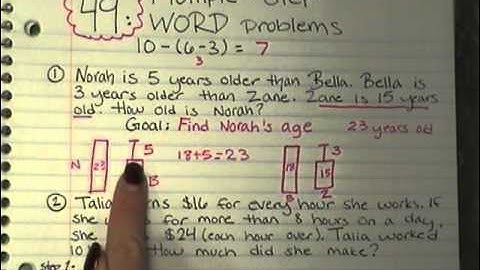 49: Multiple Step
WORD Problems
10-(6-3) = 7
3
① Norah is 5 years older than Bella. Bella is
3 years older than Zane. Zane is 15 years
old. How old is Norah?
Goal: Find Norah's age 23 years old
N 23 5 B 18+5=23 18 B 3 15 Z
② Talia earns $16 for every hour she works. If
she for more than 8 hours on a day,
she $24 (each hour over). Talia worked
10 How much did she make?
Step 1: